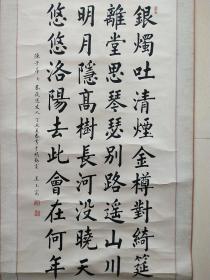 銀燭吐清煙金樽對綺筵
離堂思琴瑟別路遥山川
明月隱高樹長河没曉天
悠悠洛陽去此會在何年